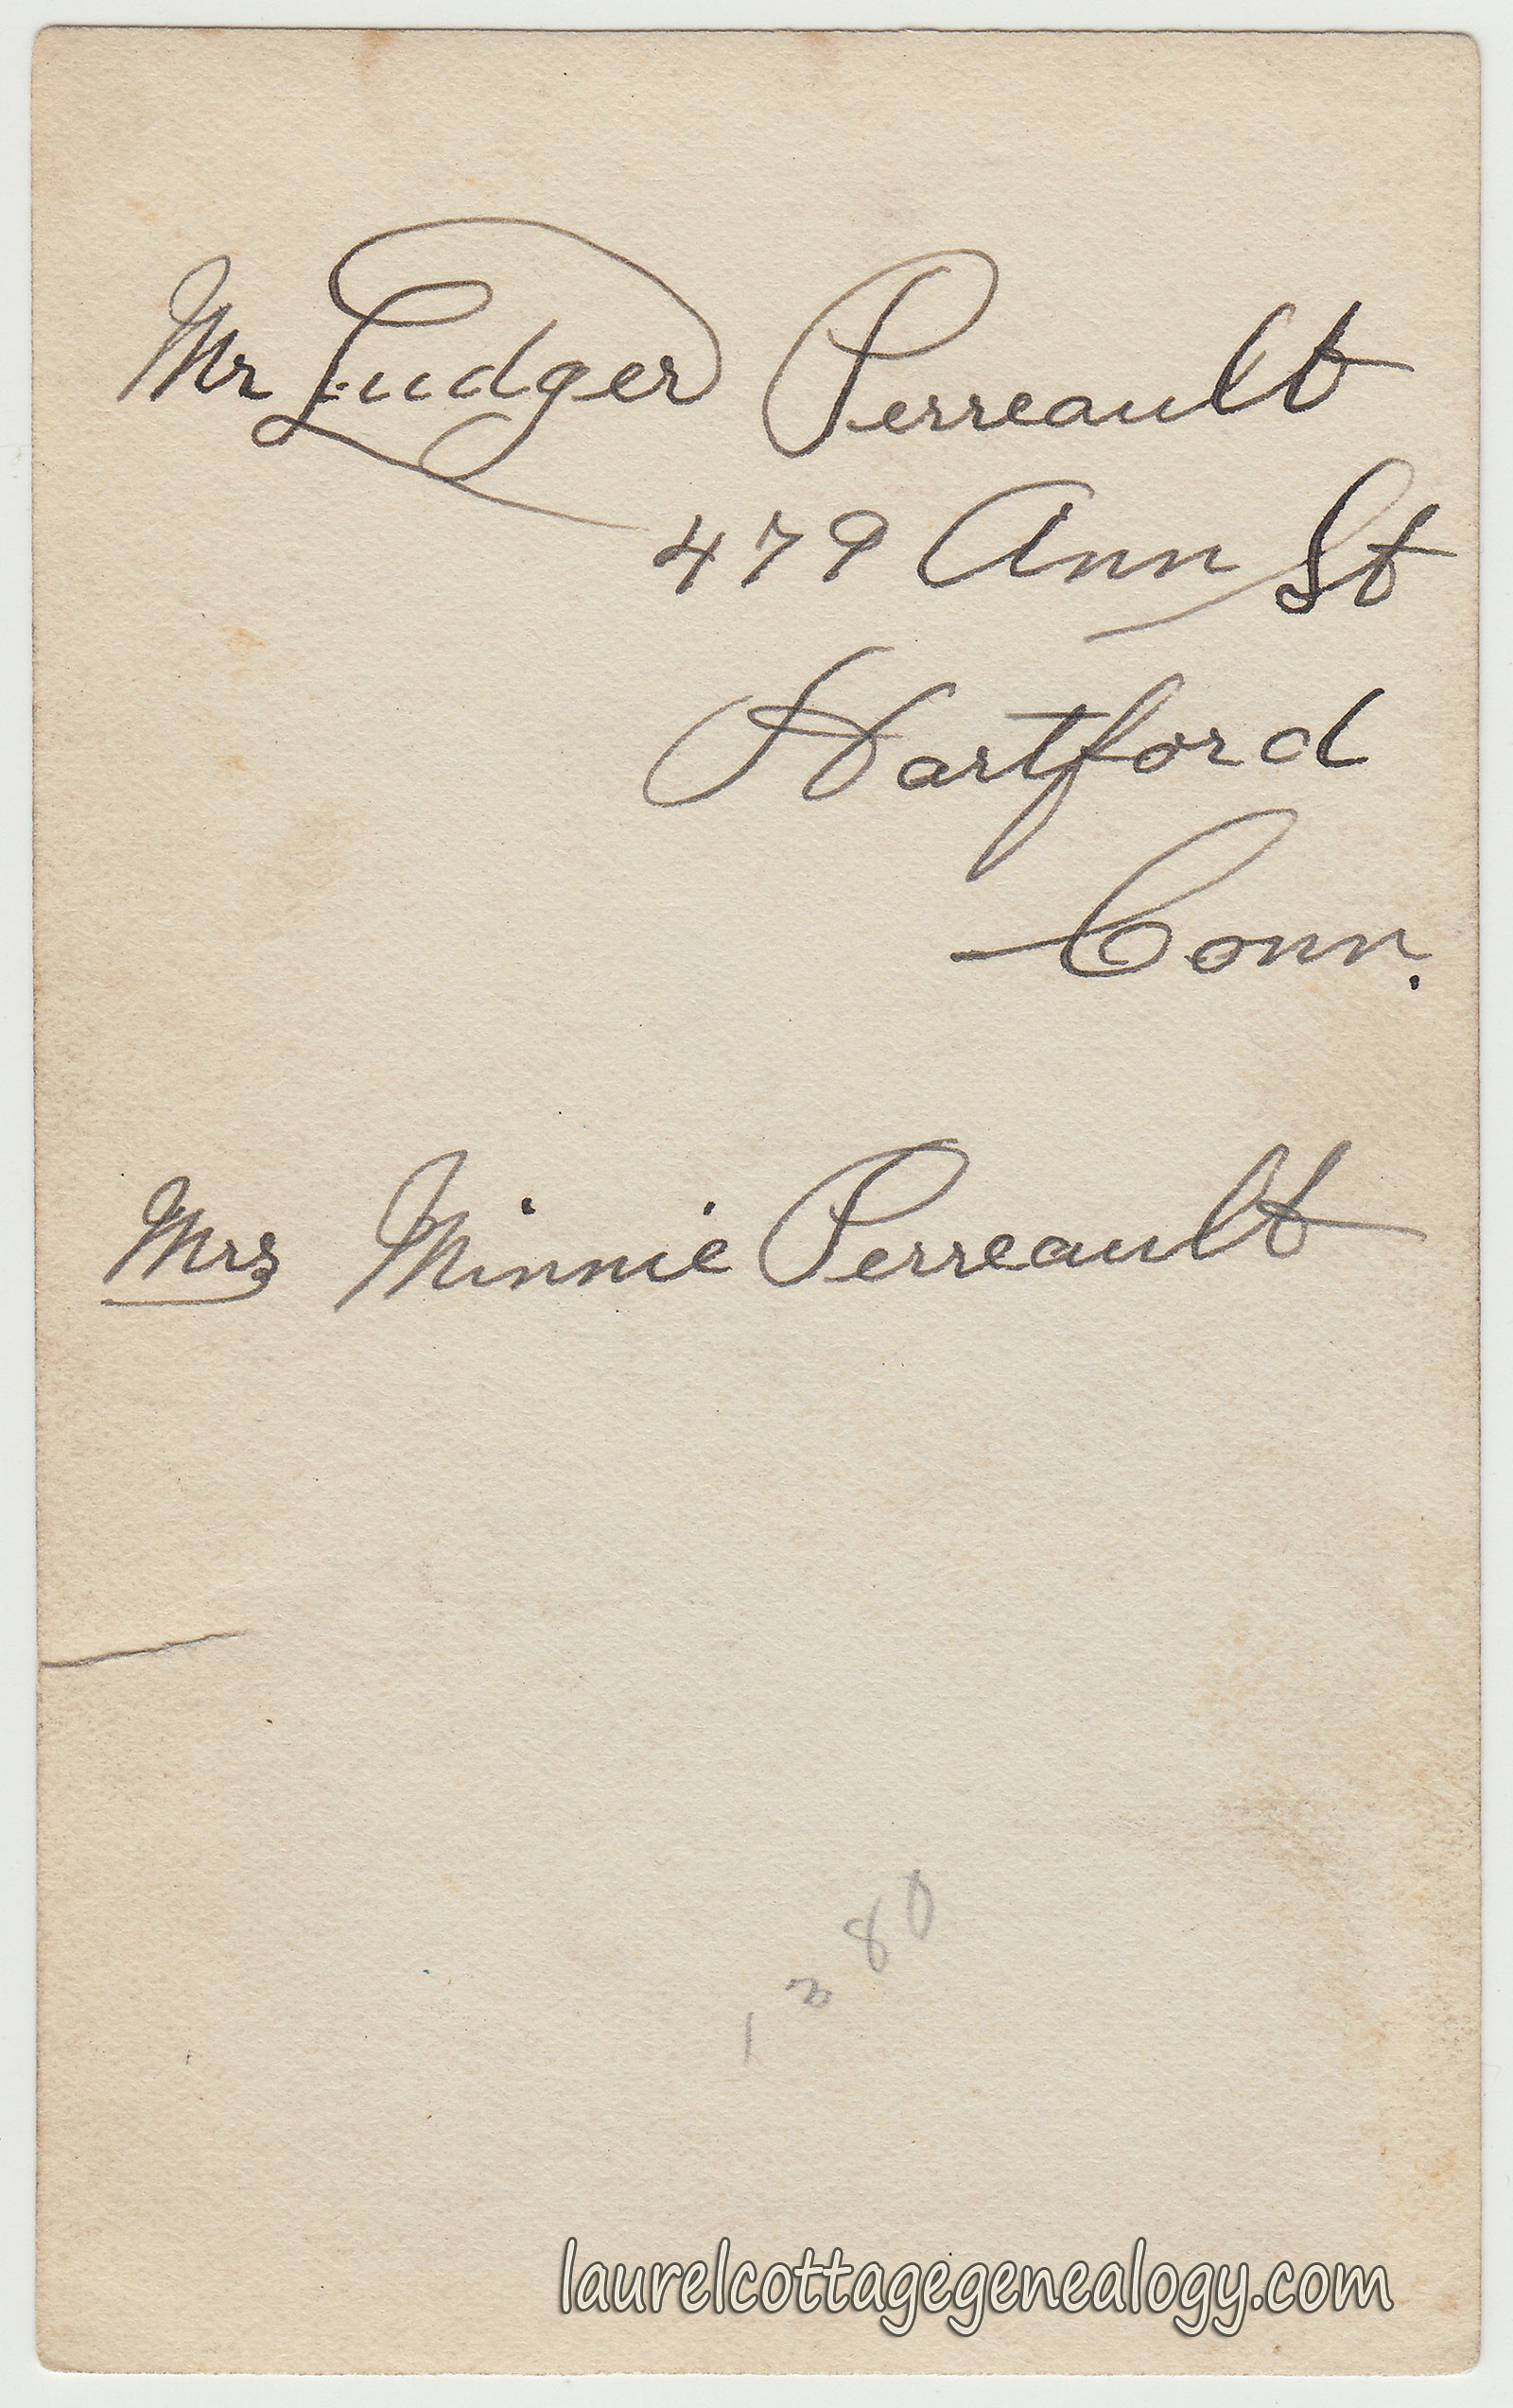 Mr Ludger Perreault
479 Ann St
Hartford
Conn.
Mrs Minnie Perreault
1280
laurelcottagegenealogy.com